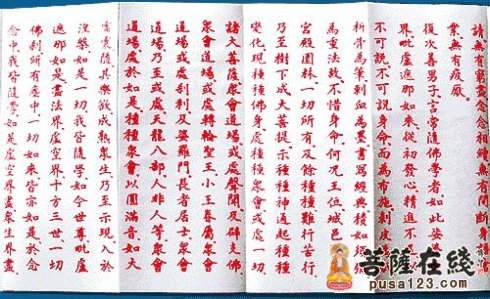 請無有窮盡念念相續無有間斷身語
業無有疲厭
復次善男子言常隨佛學者如此娑
界毗盧遮那如來從初發心精進不
不可說不可說身命而為布施剝皮
析骨為筆刺血為墨書寫經典積如
為重法故不惜身命何況王位城邑
宮殿園林一切所有及餘種種難行苦行
乃至樹下成大菩提示種種神通起種種
變化現種種佛身處種種眾會或處一切
諸大菩薩眾會道場或處聲聞及辟支佛
眾會道場或處轉輪聖王小王眷屬眾會
道場或處剎利及婆羅門長者居士眾會
道場乃至或處天龍八部人非人等眾會
道場處於如是種種眾會以圓滿音如大
雷震隨其樂欲成熟眾生乃至示現入於
涅槃如是一切我皆隨學如今世尊毗盧
遮那如是盡法界虛空界十方三世一切
佛剎所有塵中一切如來皆亦如是於念
念中我皆隨學如是虛空界盡眾生界盡
菩萨在线
pusa123.com